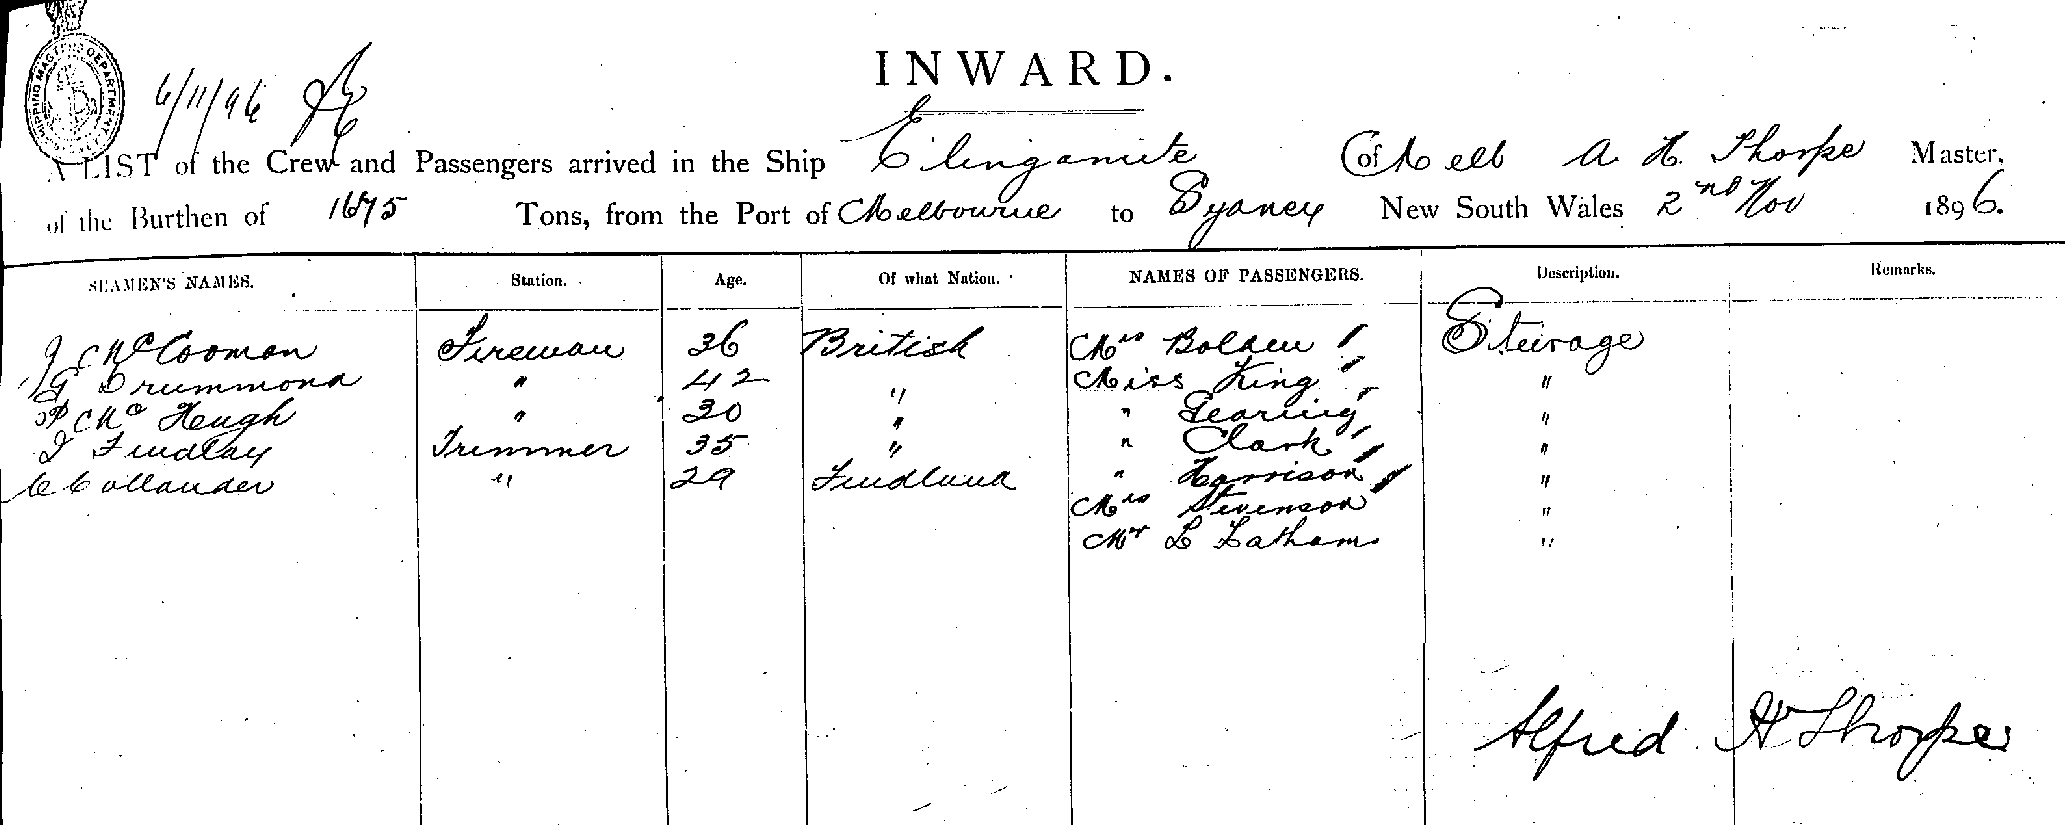 SHIPPING MASTER'S DEPARTMENT
6/11/96
INWARD.
A LIST of the Crew and Passengers arrived in the Ship Elingamite of Melb A. H. Thorpe Master,
of the Burthen of 1675 Tons, from the Port of Melbourne to Sydney New South Wales 2nd Nov 1896.
SEAMEN'S NAMES. Station. Age. Of what Nation. NAMES OF PASSENGERS. Description. Remarks.
J McCooman Fireman 36 British Mrs Bolden Steerage
G Drummond " 42 " Miss King "
P McHeugh " 30 " " Gearing "
J Findlay Trimmer 35 " " Clark "
C Collander " 29 Findland " Harrison "
Mrs Stevenson "
Mr L Latham "
Alfred H Thorpe